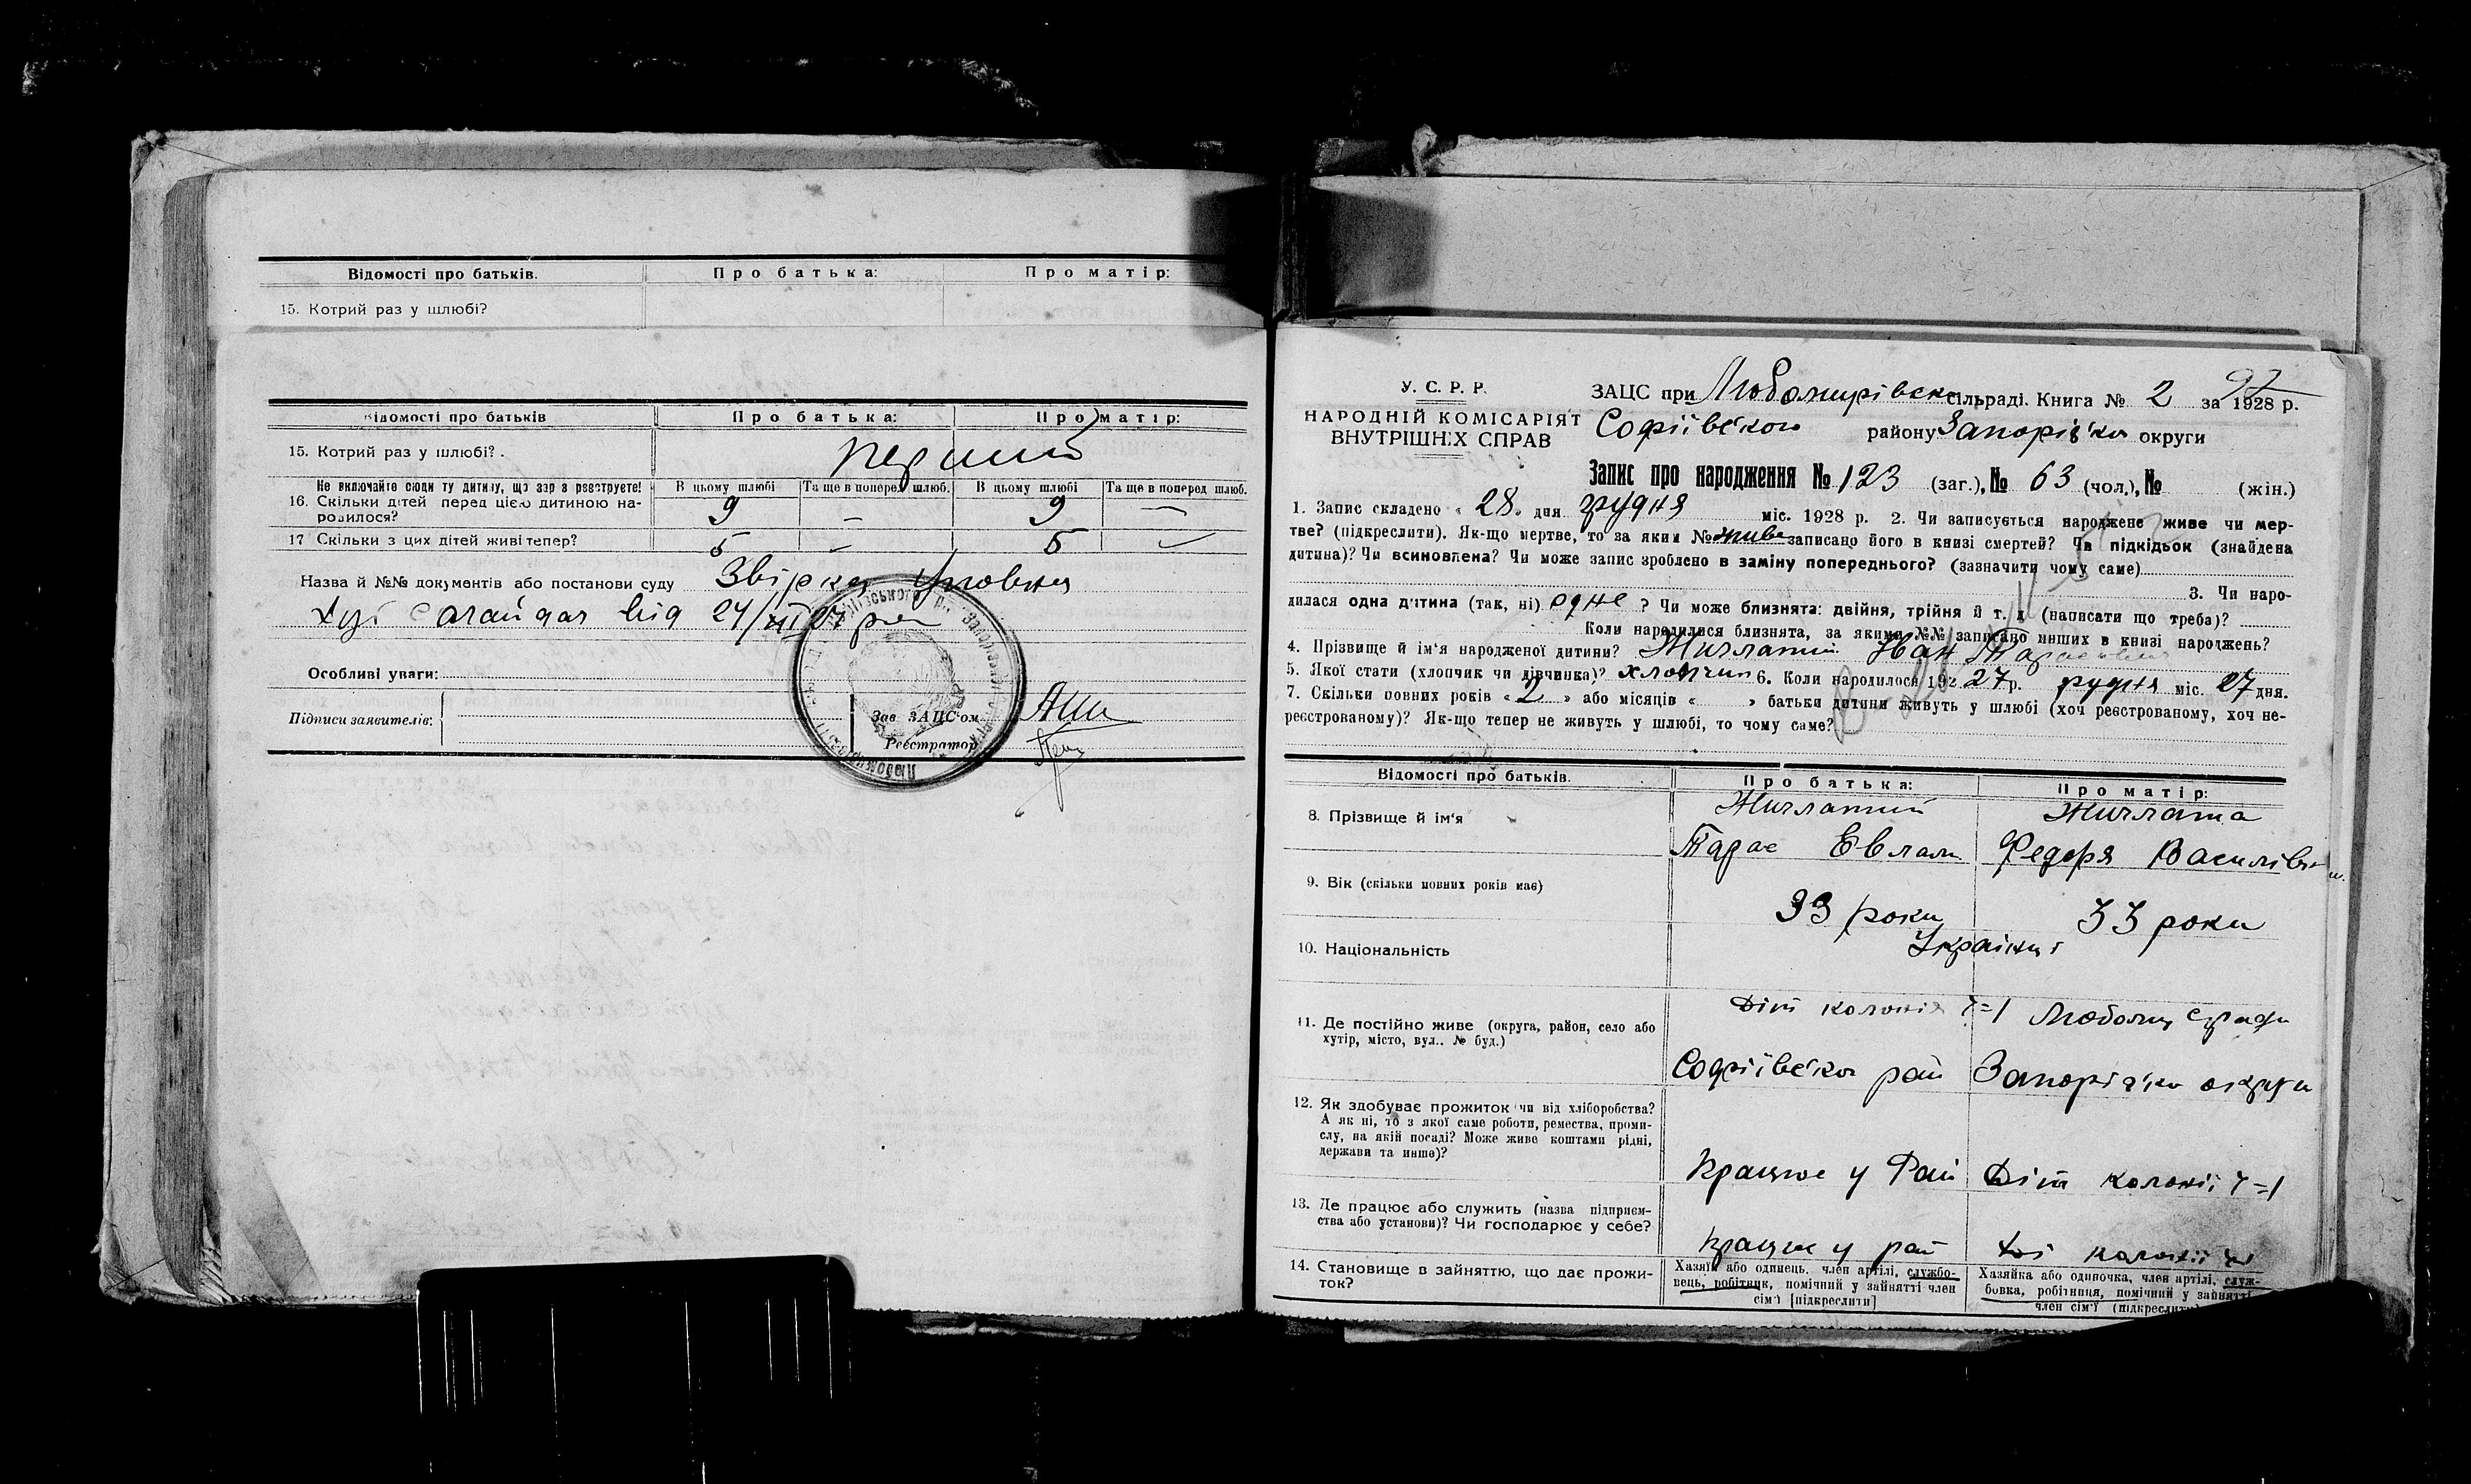 Відомості про батьків. Про батька: Про матір:
15. Котрий раз у шлюбі?
Відомості про батьків Про батька: Про матір:
15. Котрий раз у шлюбі? перший
Не включайте сюди ту дитину, що зараз реєструєте! В цьому шлюбі Та ще в поперед. шлюб. В цьому шлюбі Та ще в поперед шлюб.
16. Скільки дітей перед цією дитиною на-
родилося? 9 — 9 —
17 Скільки з цих дітей живі тепер? 5 — 5
Назва й №№ документів або постанови суду Звірка
від 24/
Особливі уваги:
Підписи заявителів: Зав ЗАЦС'ом
Реєстратор
У. С. Р. Р.
НАРОДНІЙ КОМІСАРІЯТ
ВНУТРІШНІХ СПРАВ
ЗАЦС при Любомирівск сільраді. Книга № 2 за 1928 р. 97
Софіївського району Запоріз'ко округи
Запис про народження № 123 (заг.), № 63 (чол.), № (жін.)
1. Запис складено « 28 » дня грудня міс. 1928 р. 2. Чи записується народжене живе чи мер-
тве? (підкреслити). Як-що мертве, то за яким № живе записано його в книзі смертей? Чи підкідьок (знайдена
дитина)? Чи всиновлена? Чи може запис зроблено в заміну попереднього? (зазначити чому саме)
3. Чи наро-
дилася одна дитина (так, ні) одне ? Чи може близнята: двійня, трійня й т. д (написати що треба)?
Коли народилися близнята, за якими №№ записано инших в книзі народжень?
4. Прізвище й ім'я народженої дитини? Жихлатий Іван Тарасович
5. Якої стати (хлопчик чи дівчинка)? хлопчик 6. Коли народилося 192 27 р. грудня міс. 27 дня.
7. Скільки повних років « 2 » або місяців « » батьки дитини живуть у шлюбі (хоч реєстрованому, хоч не-
реєстрованому)? Як-що тепер не живуть у шлюбі, то чому саме?
Відомості про батьків. Про батька: Про матір:
8. Прізвище й ім'я Тарас Евлам Федора Василівн
9. Вік (скільки повних років має) 33 роки 33 роки
10. Національність Українці
11. Де постійно живе (округа, район, село або
хутір, місто, вул.. № буд.) Діт колонія Любоми
Софіївс'ко рай Запоріз'ко округи
12. Як здобуває прожиток чи від хліборобства?
А як ні, то з якої саме роботи, ремества, проми-
слу, на якій посаді? Може живе коштами рідні,
держави та инше)? Працює у Рай Діт колонії
13. Де працює або служить (назва підприєм-
ства або установи)? Чи господарює у себе? Працює у рай колонії
14. Становище в зайняттю, що дає прожи-
ток? Хазяїн або одинець, член артілі, службо-
вець, робітник, помічний у зайнятті член
сім'ї [підкреслити]
Хазяйка або одиночка, член артілі, служ-
бовка, робітниця, помічний у зайнятті
член сім'ї (підкреслити)